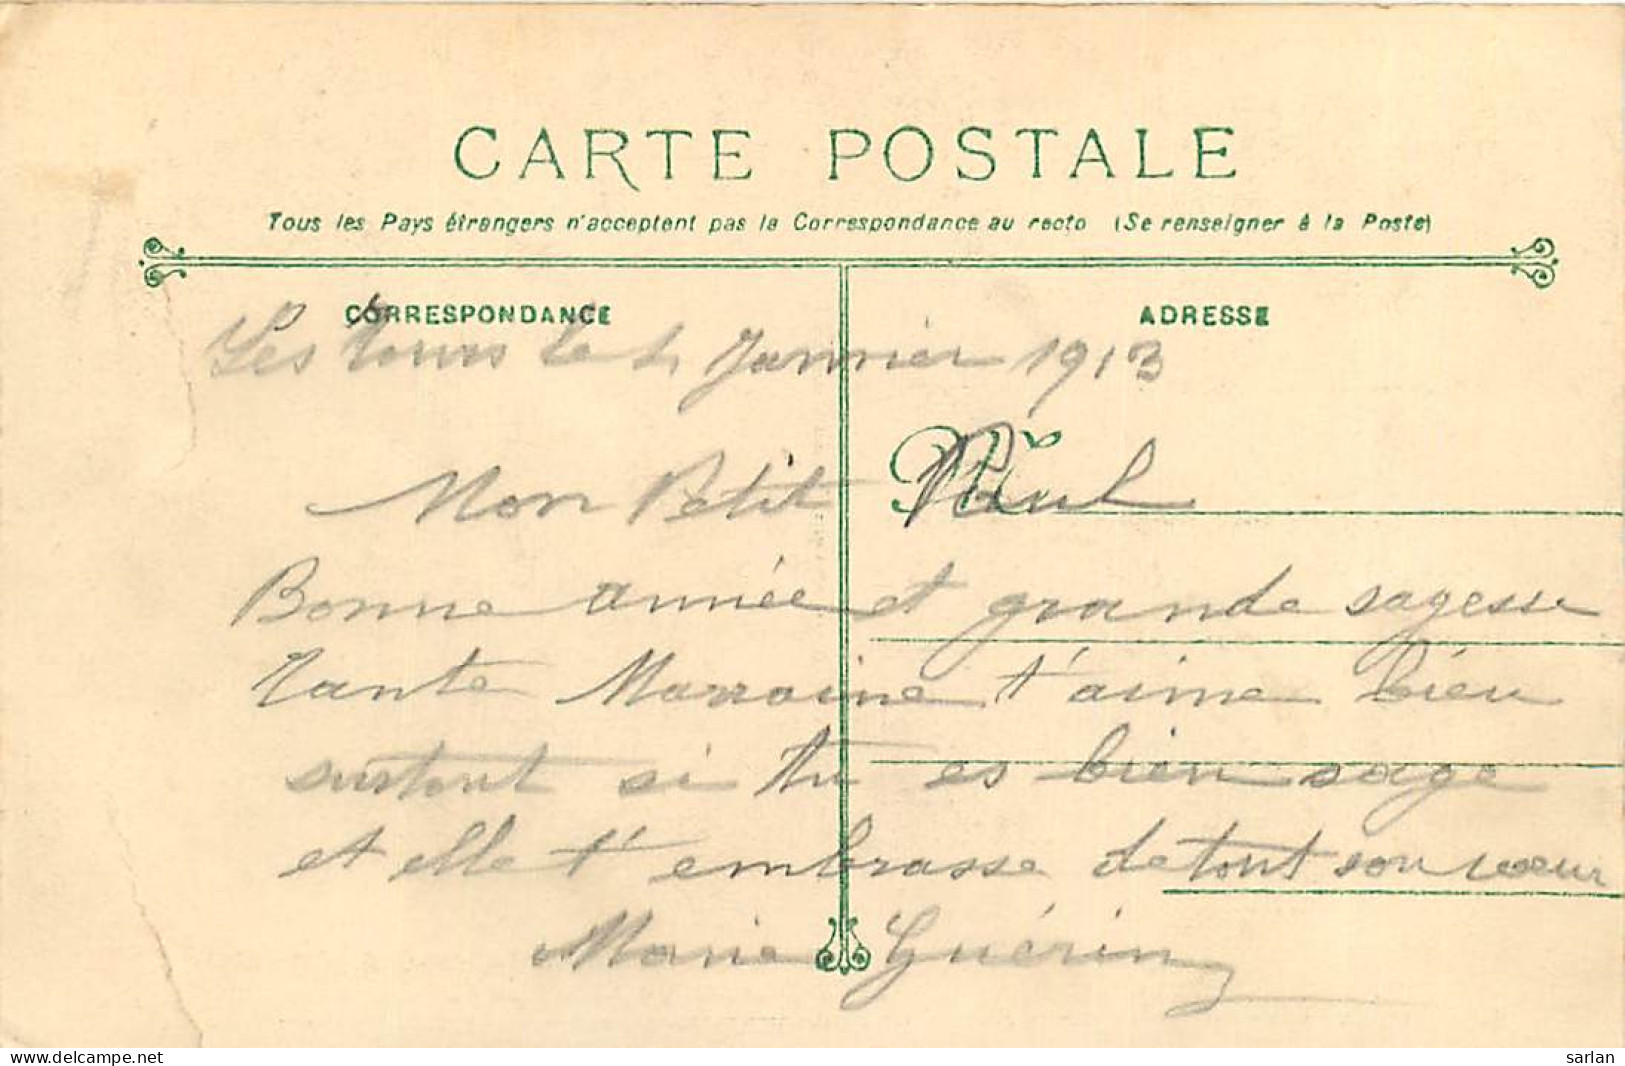 CARTE POSTALE
Tous les Pays étrangers n'acceptent pas la Correspondance au recto (Se renseigner à la Poste)
CORRESPONDANCE
ADRESSE
Les tours le 1 Janvier 1913
M à
Mon Petit Paul
Bonne année et grande sagesse
Tante Marraine t'aime bien
surtout si tu es bien sage
et elle t'embrasse de tout son coeur
Marie Guérin
www.delcampe.net
sarlan